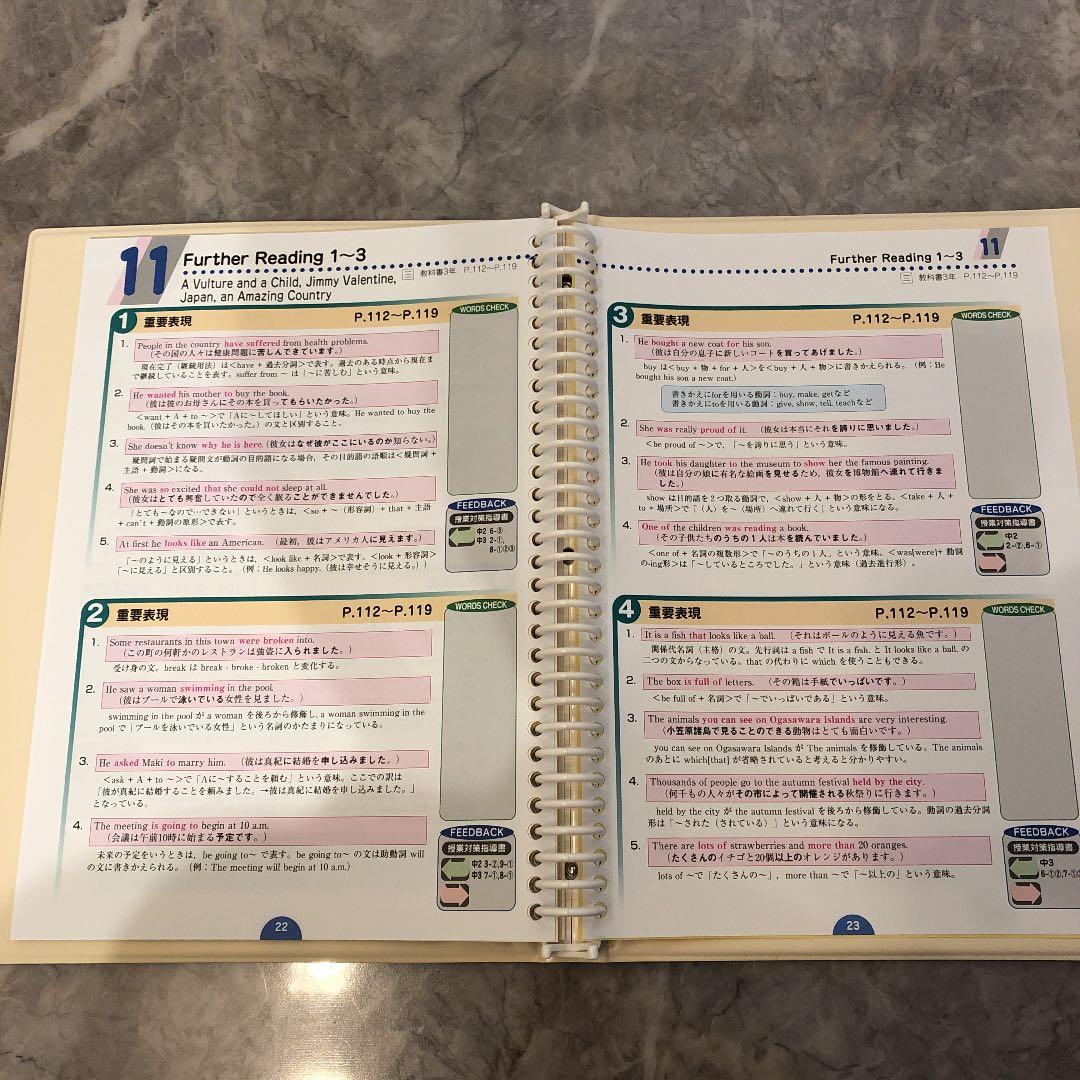 11
Further Reading 1~3
A Vulture and a Child, Jimmy Valentine,
Japan, an Amazing Country
三 教科書3年 P.112~P.119
1 重要表現 P.112~P.119
WORDS CHECK
1. People in the country have suffered from health problems.
(その国の人々は健康問題に苦しんできています。)
現在完了(継続用法)は<have + 過去分詞>で表す。過去のある時点から現在ま
で継続していることを表す。suffer from ~ は「~に苦しむ」という意味。
2. He wanted his mother to buy the book.
(彼は彼のお母さんにその本を買ってもらいたかった。)
<want + A + to ~>で「Aに~してほしい」という意味。He wanted to buy the
book.(彼はその本を買いたかった。)の文と区別すること。
3. She doesn't know why he is here. (彼女はなぜ彼がここにいるのか知らない。)
疑問詞で始まる疑問文が動詞の目的語になる場合，その目的語の語順は<疑問詞 +
主語 + 動詞>になる。
4. She was so excited that she could not sleep at all.
(彼女はとても興奮していたので全く眠ることができませんでした。)
「とても~なので…できない」というときは、<so + ~(形容詞) + that + 主語
+ can't + 動詞の原形>で表す。
5. At first he looks like an American. (最初，彼はアメリカ人に見えます。)
「~のように見える」というときは、<look like + 名詞>で表す。<look + 形容詞>
「~に見える」と区別すること。(例：He looks happy. (彼は幸せそうに見える。))
FEEDBACK
授業対策指導書
中2 6-③
中3 2-①,
8-①②③
2 重要表現 P.112~P.119
WORDS CHECK
1. Some restaurants in this town were broken into.
(この町の何軒かのレストランは強盗に入られました。)
受け身の文。break は break - broke - broken と変化する。
2. He saw a woman swimming in the pool.
(彼はプールで泳いでいる女性を見ました。)
swimming in the pool が a woman を後ろから修飾し, a woman swimming in the
pool で「プールを泳いでいる女性」という名詞のかたまりになっている。
3. He asked Maki to marry him. (彼は真紀に結婚を申し込みました。)
<ask + A + to ~>で「Aに~することを頼む」という意味。ここでの訳は
「彼が真紀に結婚することを頼みました。→彼は真紀に結婚を申し込みました。」
となっている。
4. The meeting is going to begin at 10 a.m.
(会議は午前10時に始まる予定です。)
未来の予定をいうときは、be going to~ で表す。be going to~ の文は助動詞 will
の文に書きかえられる。(例：The meeting will begin at 10 a.m.)
FEEDBACK
授業対策指導書
中2 3-②,9-①
中3 7-①,8-①
22
Further Reading 1~3
11
三 教科書3年 P.112~P.119
3 重要表現 P.112~P.119
WORDS CHECK
1. He bought a new coat for his son.
(彼は自分の息子に新しいコートを買ってあげました。)
buy は<buy + 物 + for + 人>を<buy + 人 + 物>に書きかえられる。(例：He
bought his son a new coat.)
書きかえにforを用いる動詞：buy, make, getなど
書きかえにtoを用いる動詞：give, show, tell, teachなど
2. She was really proud of it. (彼女は本当にそれを誇りに思いました。)
<be proud of ~>で、「~を誇りに思う」という意味。
3. He took his daughter to the museum to show her the famous painting.
(彼は自分の娘に有名な絵画を見せるため、彼女を博物館へ連れて行きま
した。)
show は目的語を2つ取る動詞で、<show + 人 + 物>の形をとる。<take + 人 +
to + 場所>で「(人)を~(場所)へ連れて行く」という意味になる。
4. One of the children was reading a book.
(その子供たちのうちの1人は本を読んでいました。)
<one of + 名詞の複数形>で「~のうちの1人」という意味。<was[were]+ 動詞
の-ing形>は「~しているところでした。」という意味(過去進行形)。
FEEDBACK
授業対策指導書
中2
2-②,6-①
4 重要表現 P.112~P.119
WORDS CHECK
1. It is a fish that looks like a ball. (それはボールのように見える魚です。)
関係代名詞(主格)の文。先行詞は a fish で It is a fish. と It looks like a ball. の
二つの文からなっている。that の代わりに which を使うこともできる。
2. The box is full of letters. (その箱は手紙でいっぱいです。)
<be full of + 名詞>で「~でいっぱいである」という意味。
3. The animals you can see on Ogasawara Islands are very interesting.
(小笠原諸島で見ることのできる動物はとても面白いです。)
you can see on Ogasawara Islands が The animals を修飾している。The animals
のあとに which[that] が省略されていると考えると分かりやすい。
4. Thousands of people go to the autumn festival held by the city.
(何千もの人々がその市によって開催される秋祭りに行きます。)
held by the city が the autumn festival を後ろから修飾している。動詞の過去分詞
形は「~された(されている)」という意味になる。
5. There are lots of strawberries and more than 20 oranges.
(たくさんのイチゴと20個以上のオレンジがあります。)
lots of ~で「たくさんの~」, more than ~で「~以上の」という意味。
FEEDBACK
授業対策指導書
中3
6-①②,7-①
23